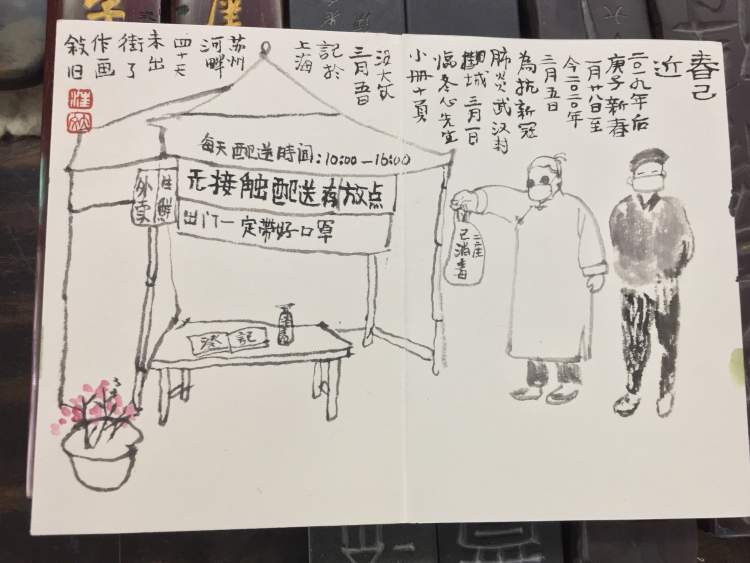 春已
近
二〇一九年后
庚子新春
一月廿八日至
今二〇二〇年
三月五日
為抗新冠
肺炎武汉封
城三月一日
臨冬心先生
小册十頁
三月五日
記於
上海
苏州
河畔
四十天
未出
街了
作画
敘旧
每天配送時间:10:00-16:00
无接触配送存放点
出门一定带好口罩
生鮮
外卖
登記
二座
已消毒